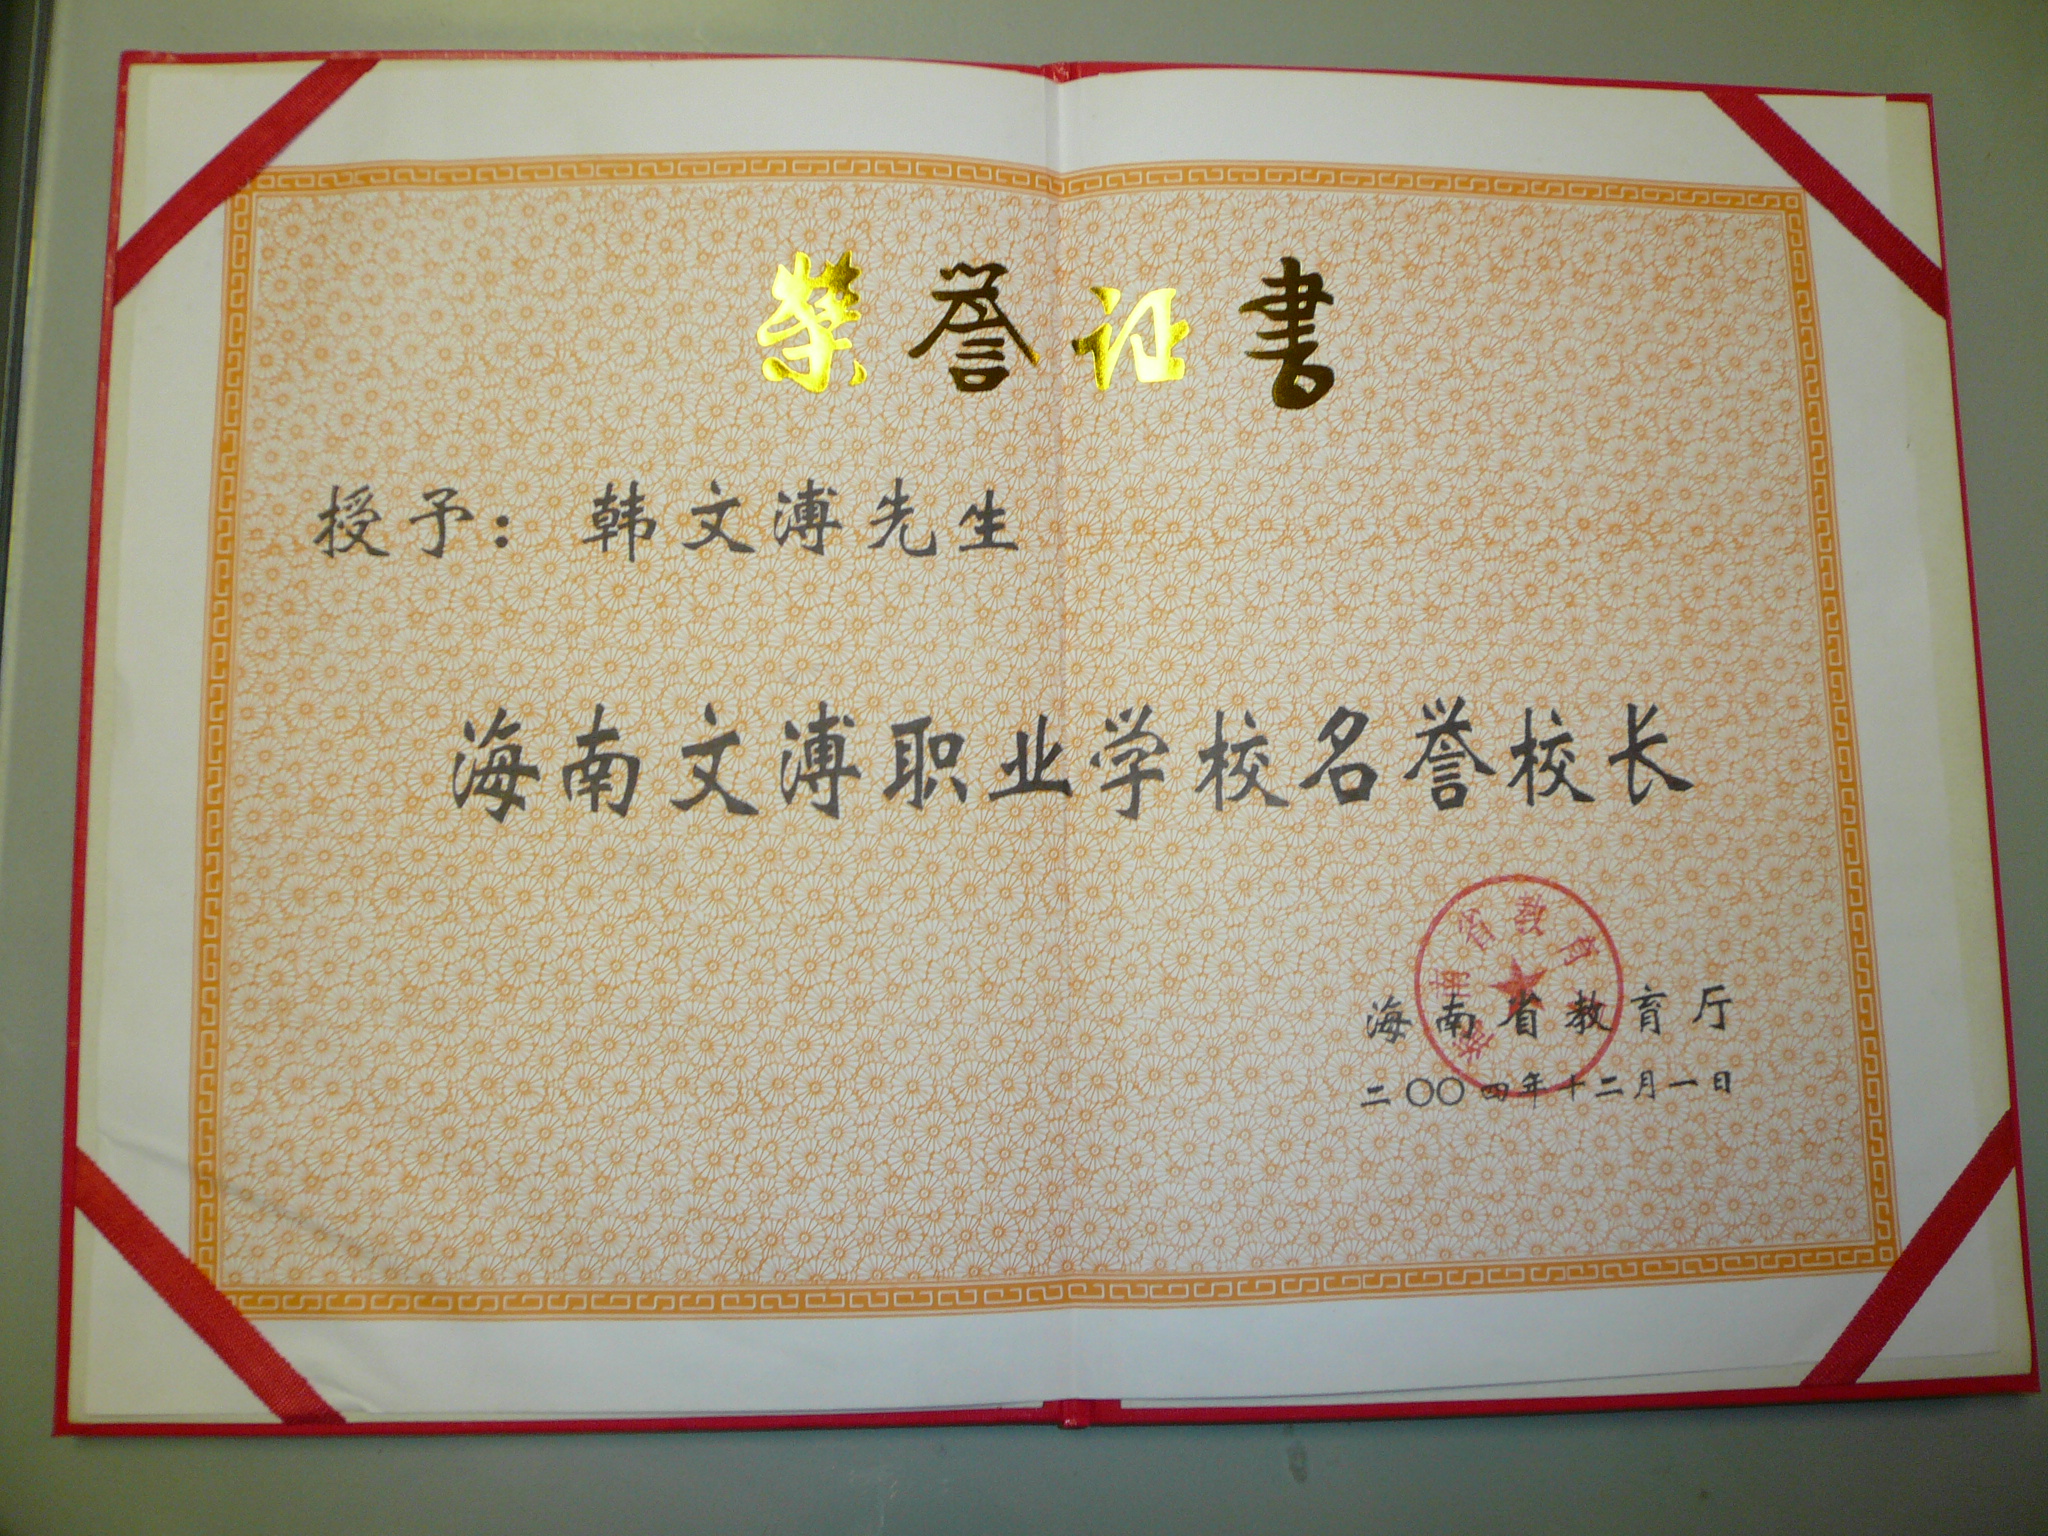 荣誉证书
授予：韩文溥先生
海南文溥职业学校名誉校长
海南省教育
海南省教育厅
二〇〇四年十二月一日